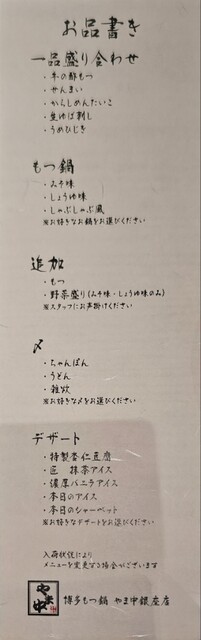 お品書き
一品盛り合わせ
・牛の酢もつ
・ぜんまい
・からしめんたいこ
・生ゆば刺し
・うめひじき
もつ鍋
・みそ味
・しょうゆ味
・しゃぶしゃぶ風
※お好きなお鍋をお選びください
追加
・もつ
・野菜盛り(みそ味・しょうゆ味のみ)
※スタッフにお声掛けください
〆
・ちゃんぽん
・うどん
・雑炊
※お好きな〆をお選びください
デザート
・特製杏仁豆腐
・匠 抹茶アイス
・濃厚バニラアイス
・本日のアイス
・本日のシャーベット
※お好きなデザートをお選びください
入荷状況により
メニューを変更する場合がございます
やま中
博多もつ鍋 やま中銀座店